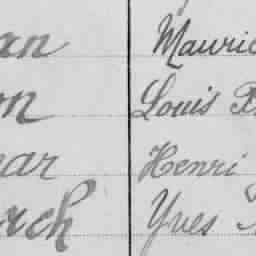 an Mauric
on Louis B
ear Henri
rch Yves